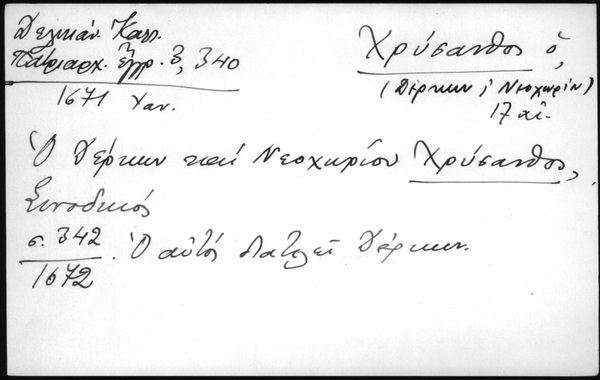 Δελικάν. Καλλ.
Πατριαρχ. ἔγγρ. 3, 340
1671 Ιαν.
Χρύσανθος ὁ,
(Δέρκων ἤ Νεοχωρίου)
17 αἰ.
Ὁ Δέρκων καί Νεοχωρίου Χρύσανθος,
Συνοδικός
σ. 342
1672
. Ὁ αὐτός Δέρκων.